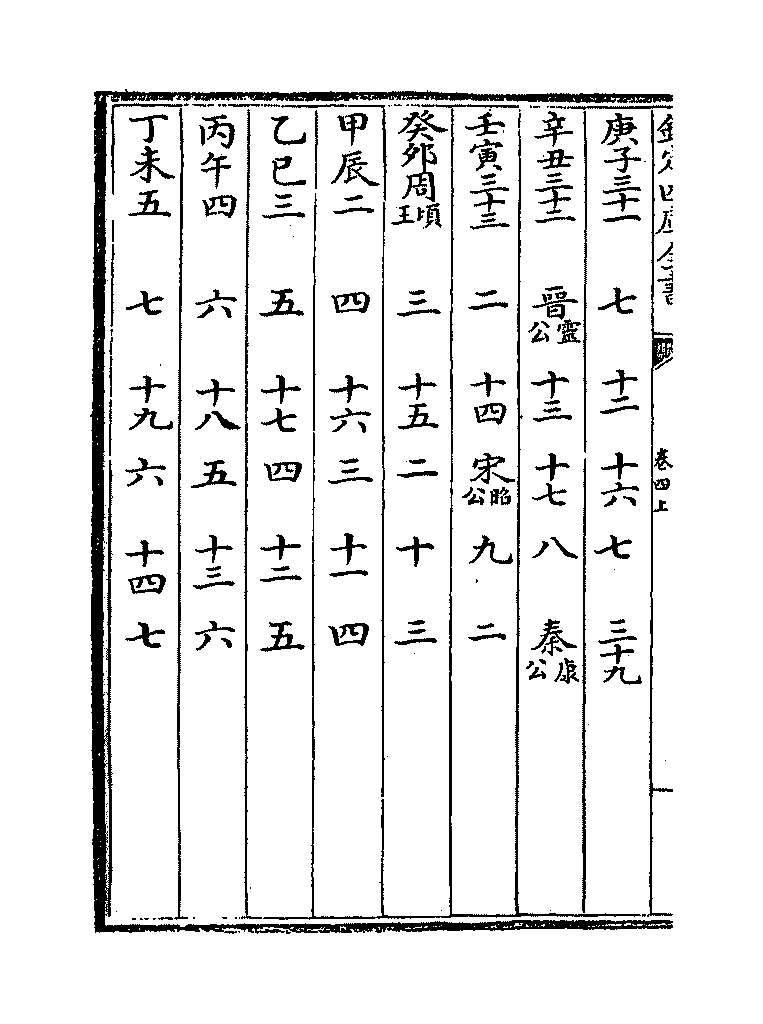 欽定四庫全書
卷四上
庚子三十一 七 十二 十六 七 三十九
辛丑三十二 晉靈公 十三 十七 八 秦康公
壬寅三十三 二 十四 宋昭公 九 二
癸卯周頃王 三 十五 二 十 三
甲辰二 四 十六 三 十一 四
乙巳三 五 十七 四 十二 五
丙午四 六 十八 五 十三 六
丁未五 七 十九 六 十四 七